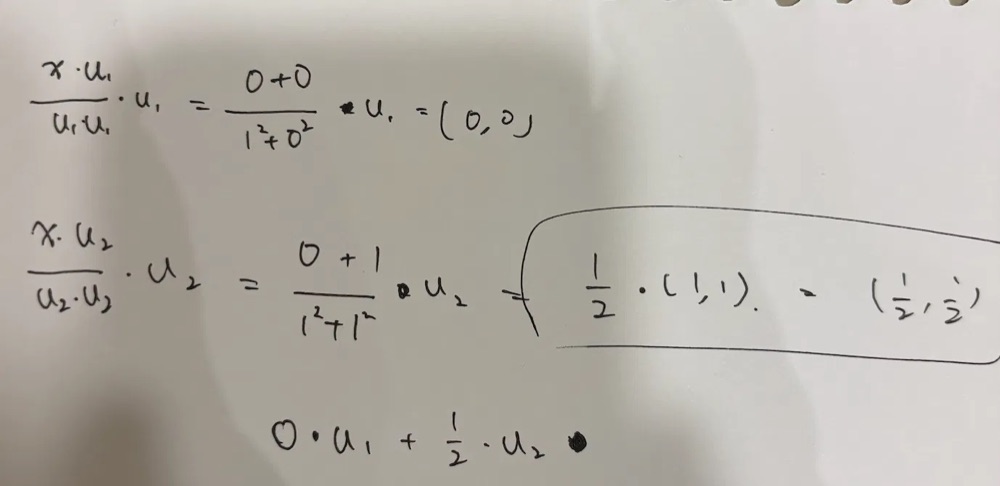 x·u₁/u₁u₁ · u₁ = 0+0/1²+0² · u₁ = (0,0)
x·u₂/u₂·u₂ · u₂ = 0+1/1²+1² · u₂ = 1/2 · (1,1). = (1/2, 1/2)
0·u₁ + 1/2 · u₂